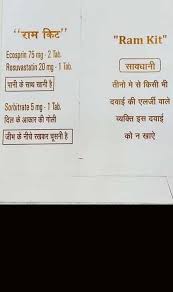 "राम किट"
Ecosprin 75 mg - 2 Tab.
Rosuvastatin 20 mg - 1 Tab.
पानी के साथ खानी है
Sorbitrate 5 mg - 1 Tab.
दिल के आकार की गोली
जीभ के नीचे रखकर चूसनी है
"Ram Kit"
सावधानी
तीनो मे से किसी भी
दवाई की एलर्जी वाले
व्यक्ति इस दवाई
को न खाऐ